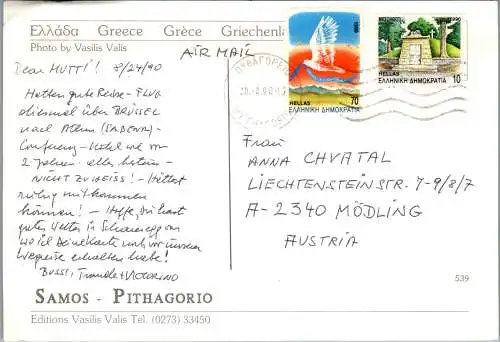 Ελλάδα Greece Grèce Griechenla
Photo by Vasilis Valis
AIR MAIL
Dear MUTTI! 8/24/90
Hatten gute Reise - FLUG
diesmal über BRÜSSEL
nach Athen (SABENA) -
Conference - Hotel wie vor
2 Jahren. alles bestens -
NICHT ZU HEISS! - Hättest
ruhig mitkommen
können! - Hoffe, du hast
gutes Wetter in
wo ich deine Karte noch vor unserer
Wegreise erhalten habe!
Bussi, Traudl + VICTORINO
SAMOS - PITHAGORIO
Editions Vasilis Valis Tel. (0273) 33450
1990
HELLAS 70
ΕΛΛΗΝΙΚΗ ΔΗΜΟΚΡΑΤΙΑ
HELLAS 10
ΕΛΛΗΝΙΚΗ ΔΗΜΟΚΡΑΤΙΑ
Frau
ANNA CHVATAL
LIECHTENSTEINSTR. 7-9/8/7
A-2340 MÖDLING
AUSTRIA
539